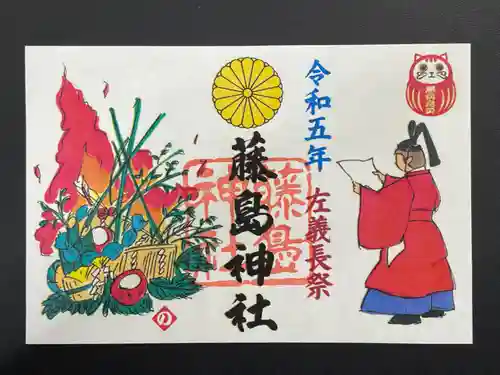 令和五年
左義長祭
藤島神社
藤島
神社
の